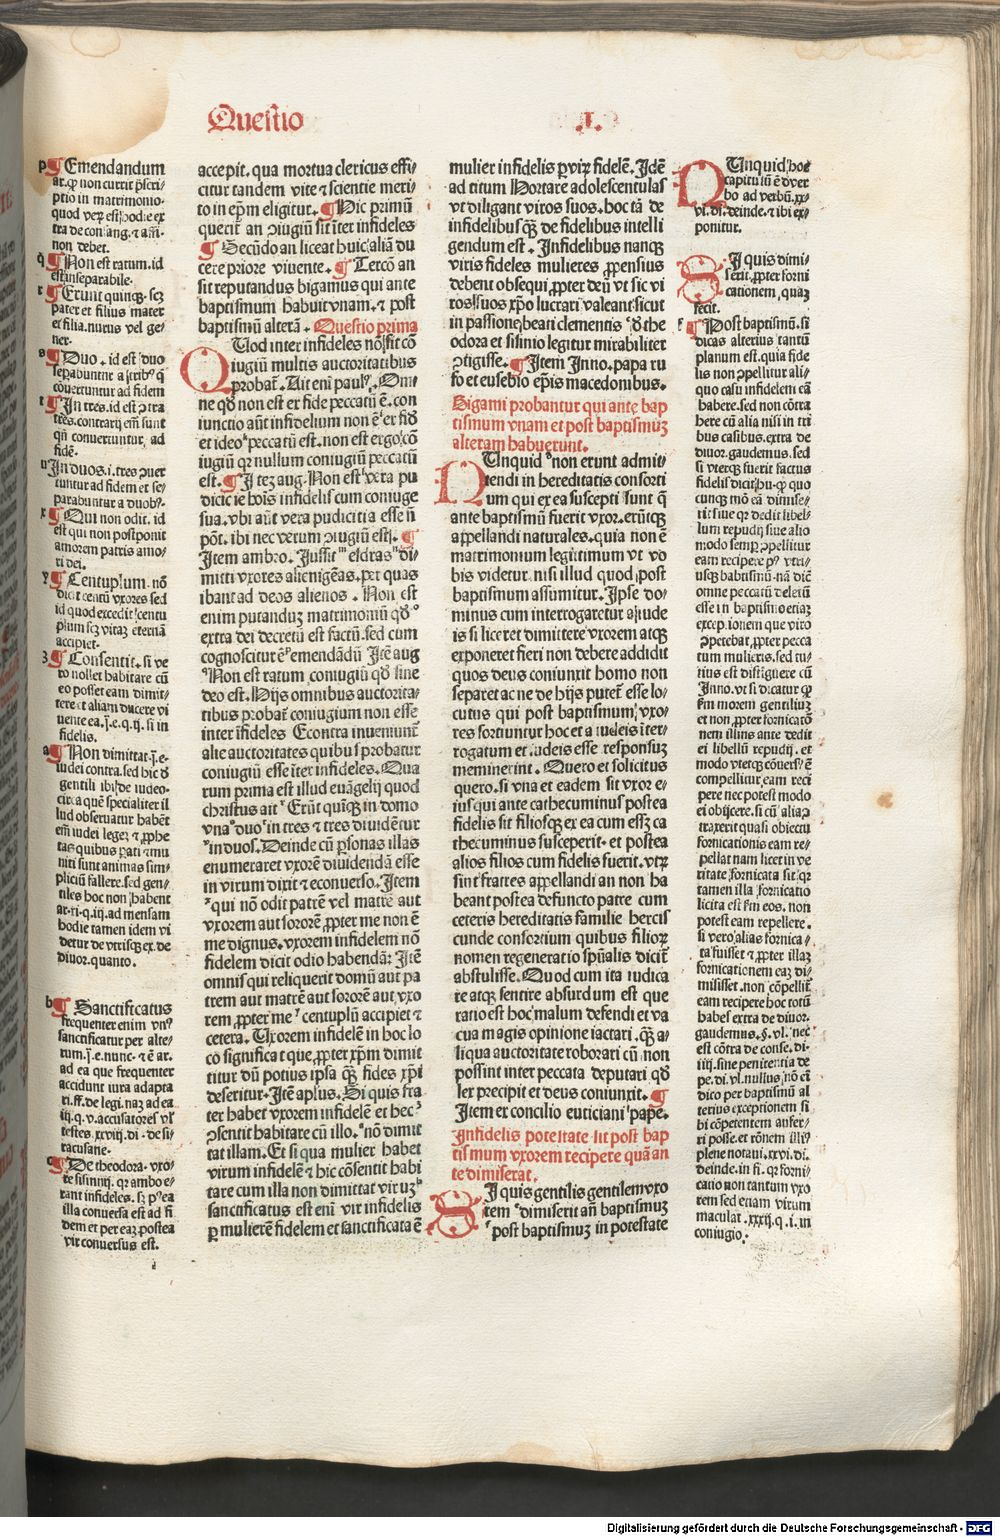 Questio .I.
p ¶ Emendandum
ar. ꝙ non currit p̄scri/
ptio in matrimonio.
quod veꝝ est hodie ex
tra de con ang. ⁊ affi.
non debet.
q ¶ Non est ratum. id
est inseparabile.
r ¶ Erunt quinqꝫ. scꝫ
pater et filius mater
et filia. nurus vel ge/
ner.
s ¶ Duo. id est duo
separabuntur a tribꝰ q̄
cōuertuntur ad fidem
t ¶ In tres. id est ↄtra
tres. contrarij em̄ sunt
qn̄ conuertuntur ad
fidē.
v In duos. i. tres ↄuer
tuntur ad fidem et se/
parabuntur a duobꝰ.
x ¶ Qui non odit. id
est qui non postponit
amorem patris amo/
ri dei.
y ¶ Centuplum. nō
dicit centū vxores sed
id quod excedit centu
plum scꝫ vitaꝫ eternā
accipiet.
z ¶ Consentit. si ve
ro nollet habitare cū
eo posset eam dimit/
tere et aliam ducere vi
uente ea. j. e. q. ij. si in
fidelis.
a ¶ Non dimittat. j. e.
iudei contra. sed hic d̄
gentili ibi de iudeo.
circa quē specialiter il
lud obseruatur habēt
em̄ iudei legeꝫ ⁊ ꝓphe
tas quibus parati ⁊ mu
niti sunt animas sim/
pliciū fallere. sed gen/
tiles hoc non habent
ar. xi. q. iij. ad mensam
hodie tamen idem vi
detur de vtrisqꝫ ex. de
diuor. quanto.
b ¶ Sanctificatus
frequenter enim vnꝰ
sanctificatur per alte/
rum. j. e. nunc. ⁊ ē ar.
ad ea que frequenter
accidunt iura adapta
ri. ff. de legi. naꝫ ad ea
iij. q. v. accusatores vl̓
testes. xxviij. di. de si/
racusane.
c ¶ De theodora. vxo/
re sisinnij. qꝛ ambo e/
rant infideles. sꝫ pꝰ ea
illa conuersa est ad fi
dem et per eaꝫ postea
vir conuersus est.
accepit. qua mortua clericus effi/
citur tandem vite ⁊ scientie meri/
to in ep̄m eligitur. ¶ Hic primū
querit an ↄiugiū sit iter infideles
¶ Secūdo an liceat huic aliā du
cere priore viuente. ¶ Tercō an
sit reputandus bigamus qui ante
baptismum habuit vnam. ⁊ post
baptismū alterā. Questio prima
QUod inter infideles nō sit cō
iugiū multis auctoritatibus
probat̄. Ait eni paulꝰ. Om/
ne qd̓ non est ex fide peccatū ē. con
iunctio aūt infidelium non ē ex fid̓
et ideo peccatū est. non est ergo cō
iugiū qꝛ nullum coniugiū peccatū
est. ¶ Itez aug. Non est vera pu
dicicie hoīs infidelis cum coniuge
sua. vbi aūt vera pudicitia esse n̄
pōt. ibi nec verum ↄiugiū est. ¶
Item ambro. Iussit esdras di/
mitti vxores alienigēas. per quas
ibant ad deos alienos. Non est
enim putanduꝫ matrimoniū qd̓
extra dei decretū est factū. sed cum
cognoscitur ē emendādū Itē aug
Non est ratum coniugiū qd̓ sine
deo est. Hijs omnibus auctorita/
tibus probat̄ coniugium non esse
inter īfideles Econtra inueniunt̄
alie auctoritates quibus probatur
coniugiū esse iter infideles. Qua
rum prima est illud euāgelij quod
christus ait Erūt quīqꝫ in domo
vna duo in tres ⁊ tres diuidētur
in duos. Deinde cū ꝑsonas illas
enumeraret vxorē diuidendā esse
in virum dixit ⁊ econuerso. Item
qui nō odit patrē vel matrē aut
vxorem aut sororē ꝓpter me non ē
me dignus. vxorem infidelem nō
fidelem dicit odio habendā: Itē
omnis qui reliquerit domū aut pa
trem aut matrē aut sororē aut vxo
rem ꝓpter me centuplū accipiet ⁊
cetera. Uxorem infidelē in hoc lo
cō significat que ꝓpter xp̄m dimit
titur dū potius ipsa qꝫ fides xp̄i
deseritur. Itē aplus. Si quis fra
ter habet vxorem infidelē et hec
ↄsentit habitare cū illo. nō dimit
tat illam. Et si qua mulier habet
virum infidelē ⁊ hic cōsentit habi
tare cum illa non dimittat viruꝫ
sanctificatus est eni vir infidelis
ꝑ mulierē fidelem et sanctificata ē
mulier infidelis ꝑ virꝫ fidelē. Idē
ad titum Hortare adolescentulas
vt diligant viros suos. hoc tā de
infidelibus qꝫ de fidelibus intelli
gendum est. Infidelibus nanqꝫ
viris fideles mulieres ꝓpensius
debent obsequi ꝓpter deū vt sic vi
ros suos xp̄o lucrari valeant sicut
in passione beati clementis d̓ the
odora et sisinio legitur mirabiliter
ↄtigisse. ¶ Item Inno. papa ru
fo et eusebio ep̄is macedonibus.
Bigami probantur qui ante bap
tismum vnam et post baptismuꝫ
alteram habuerunt.
NUnquid non erunt admit/
tendi in hereditatis consorti
um qui ex ea suscepti sunt q̄
ante baptismū fuerit vxor. erūtqꝫ
appellandi naturales. quia non ē
matrimonium legitimum vt vo
bis videtur nisi illud quod post
baptismum assumitur. Ipse do/
minus cum interrogaretur a iude
is si liceret dimittere vxorem atqꝫ
exponeret fieri non debere addidit
quos deus coniunxit homo non
separet ac ne de hijs putet̄ esse lo/
cutus qui post baptismum vxo/
res sortiuntur hoc et a iudeis iter/
rogatum et iudeis esse responsuꝫ
meminerint. Quero et solicitus
quero. si vna et eadem sit vxor e/
ius qui ante cathecuminus postea
fidelis sit filiosqꝫ ex ea cum esseꝫ ca
thecuminus susceperit. et postea
alios filios cum fidelis fuerit. vtꝝ
sint fratres appellandi an non ha
beant postea defuncto patre cum
ceteris hereditatis familie hercis
cunde consortium quibus filioꝝ
nomen regeneratio spūalis dicit̄
abstulisse. Quod cum ita iudica
re atqꝫ sentire absurdum est que
ratio est hoc malum defendi et va
cua magis opinione iactari. qꝫ a/
liqua auctoritate roborari cū non
possint inter peccata deputari qd̓
lex precipit et deus coniunxit. ¶
Item ex concilio euticiani pape.
Infidelis potestate sit post bap
tismum vxorem recipere quā an
te dimiserat.
SI quis gentilis gentilem vxo
rem dimiserit an̄ baptismuꝫ
post baptismuꝫ in potestate
NUnquid hoc
capitulū ē d̓ ver
bo ad verbū. xx/
vi. di. deinde. ⁊ ibi ex/
ponitur.
SI quis dimi/
serit. ꝓpter forni
cationem quaꝫ
fecit.
¶ Post baptismū. si
dicas alterius tantū
planum est. quia fide
lis non ↄpellitur ali/
quo casu infidelem eā
habere. sed non cōtra
here cū alia nisi in tri
bus casibus. extra de
diuor. gaudemus. sed
si vterqꝫ fuerit factus
fidelis dicit hu. ꝙ quo
cunqꝫ mō eā dimise/
rit siue qꝛ dedit libel/
lum repudij siue alio
modo semꝑ ↄpellitur
eam recipere pꝰ vtri/
usqꝫ babtismū. nā diē
omne peccatū deletū
esse in baptismo etiaꝫ
excep.ionem que viro
ↄpetebat ꝓpter pecca
tum mulieris. sed tu/
tius est distiguere cū
Inno. vt si dicatur ꝙ
ꝑm morem gentiliuꝫ
et non ꝓpter fornicatō
nem illius ante dedit
ei libellū repudij. et
modo vterqꝫ cōuersꝰ ē
compellitur eam reci
pere nec potest modo
ei obijcere. si cū alia ↄ
traxerit quasi obiectu
fornicationis eam re/
pellat nam licet in ve
ritate fornicata sit qꝛ
tamen illa fornicatio
licita est ꝑm eos. non
potest eam repellere.
si vero alias fornica/
ta fuisset ⁊ ꝓpter illaꝫ
fornicationem eaꝫ di/
misisset. non cōpellit̄
eam recipere hoc totū
habes extra de diuor.
gaudemus. §. vl. nec
est cōtra de conse. di.
iiij. sine penitentia de
pe. di. vl. nullus. nō cī
dico per baptismū al
terius exceptionem si
bi cōpetentem aufer/
ri posse. et rōnem illiꝰ
plene notaui. xxvi. di.
deinde. in fi. qꝛ forni/
catio non tantum vxo
rem sed etiam virum
macular. xxxij. q. i. in
coniugio.
Digitalisierung gefördert durch die Deutsche Forschungsgemeinschaft - DFG